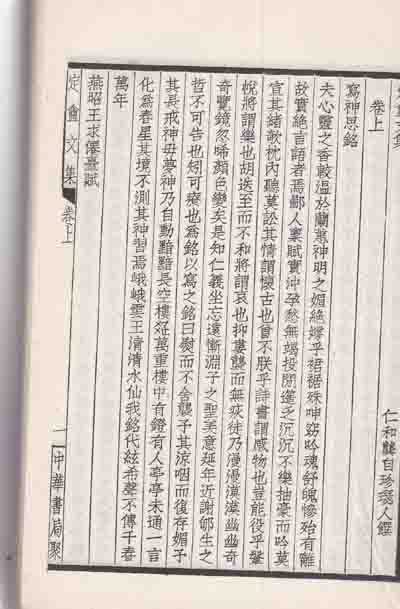 定盦文集
卷上
仁和龔自珍璱人譔
寫神思銘
夫心靈之香較溫於蘭蕙神明之媚絕嫮乎裙裾殊呻窈吟魂舒魄慘殆有離
故實絕言語者焉鄙人稟賦實沖孕愁無竭投閒簉乏沉沉不樂抽豪而吟莫
宣其緒欹枕內聽莫訟其情謂懷古也曾不朕乎詩書謂感物也豈能役乎鞶
帨將謂樂也胡迭至而不和將謂哀也抑屢襲而無疢徒乃漫漫漠漠幽幽奇
奇覽鏡忽唏顏色變矣是知仁義坐忘遠慚淵子之聖美意延年近謝郇生之
哲不可告也矧可療也為銘以寫之銘曰熨而不舍襲予其涼咽而復存媚予
其長戒神毋夢神乃自動黯黯長空樓疏萬重樓中有鐙有人亭亭未通一言
化為春星其境不測其神習焉峨峨雲王清清水仙我銘代弦希聲不傳千春
萬年
燕昭王求僊臺賦
定盦文集 卷上
一 中華書局聚